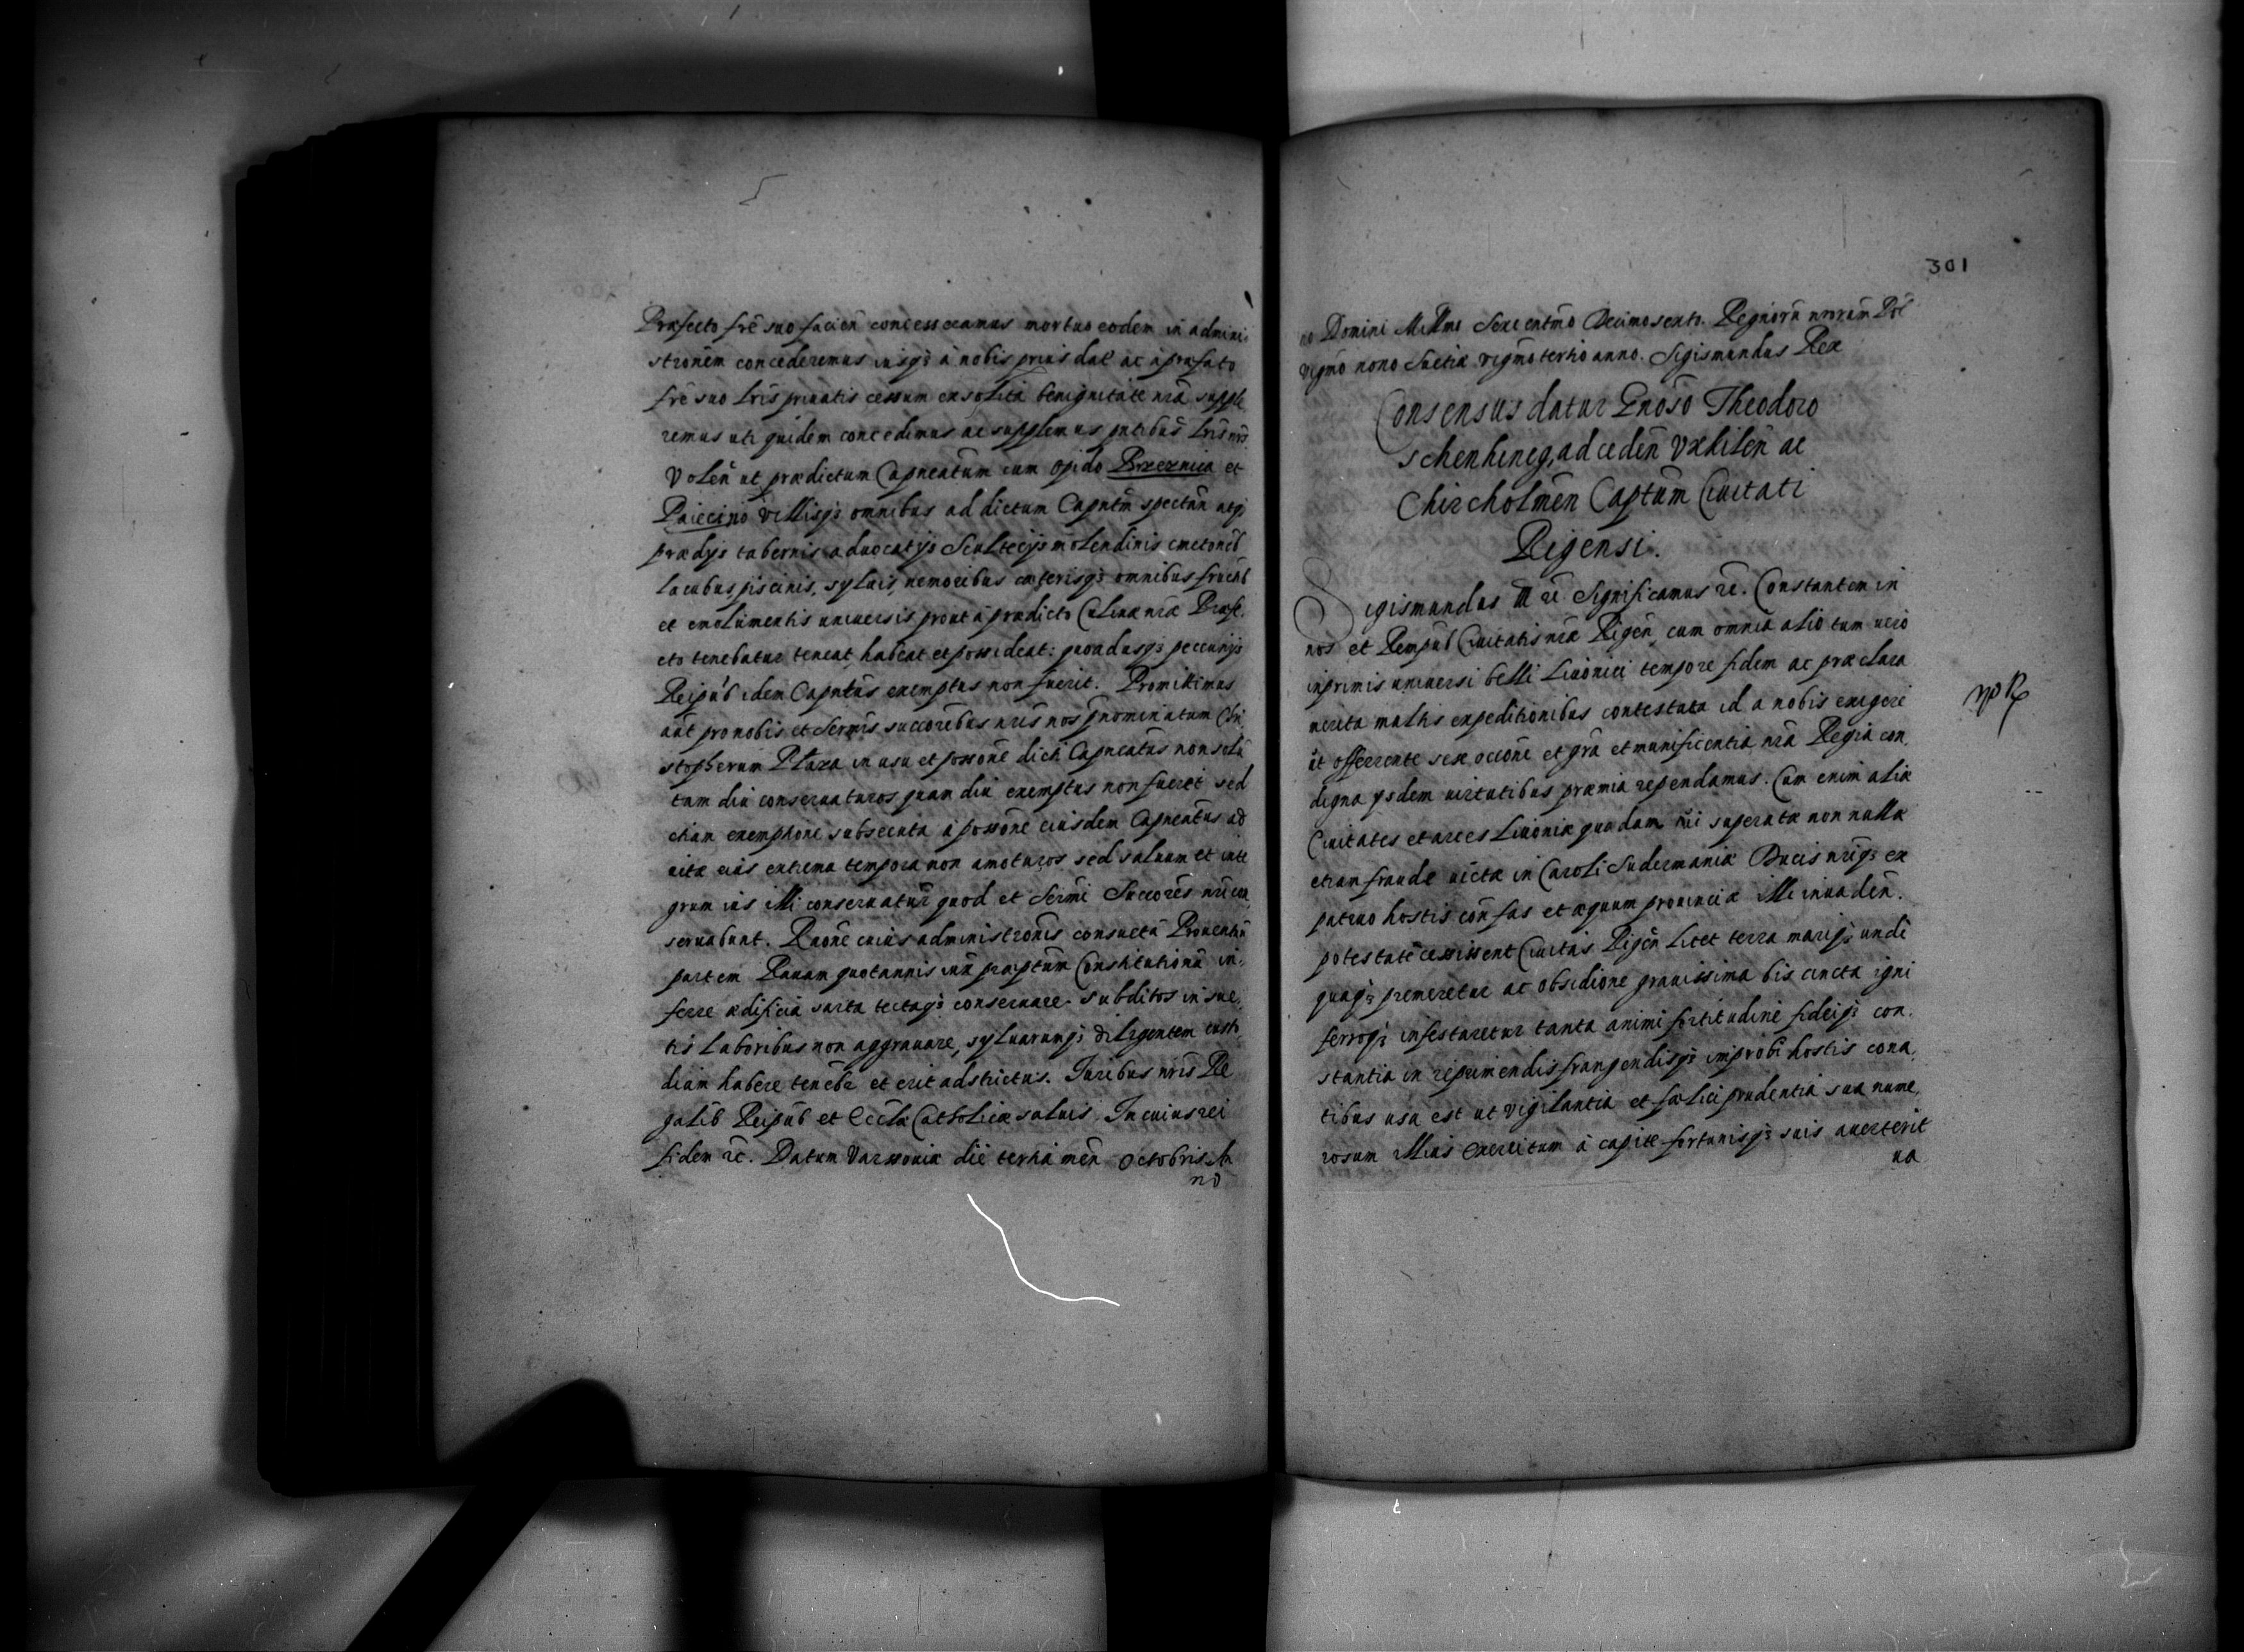 Præfecto frē suo facien̄ concesseramus mortuo eodem in admini
stronem concederemus iusq3 à nobis prius dat ac à præfato
frē suo lr̄is priuatis cessum ex solita benignitate nr̄a supple
remus uti quidem concedimus ac supplemus pn̄tibus lr̄is nr̄is
Volen̄ ut prædictum Capneatum cum opido Brzeznica et
Paiecino villisq3 omnibus ad dictum Capnt̄m spectan̄ atq3
prædijs tabernis aduocatijs Scultecijs molendinis cmetonib
lacubus piscinis, syluis, nemoribus cæterisq3 omnibus fructib
et emolumentis uniuersis prout à prædicto Culinæ nr̄æ Præfe.
cto tenebatur teneat, habeat et possideat: quoadusq3 pecunijs
Reipub idem Capntus exemptus non fuerit. Promittimus
aūt pro nobis et Sermis succoribus nr̄is nos pn̄ominatum Chri
stopherum Plaza in usu et possone dicti Capneatus non solū
tam diu conseruaturos quam diu exemptus non fueret sed
etiam exemptione subsecuta à possone eiusdem Capneatus ad
uitæ eius extrema tempora non amoturos sed saluum et inte
grum ius illi conseruatur quod et Sermi Succores nr̄i con
seruabunt. Raōne cuius administronis consueta Prouentuū
partem Rauam quotannis iux præptum Constitutionū in.
ferre ædificia sarta tectaq3 conseruare subditos insue.
tis laboribus non aggrauare, syluarumq3 diligentem custo.
diam habere tenebr et erit adstrictus. Iuribus nr̄is Re
galib Reipub et Eccl̄æ Catholicæ saluis. In cuius rei
fidem rc̄. Datum Varssouiæ die tertia men̄ Octobris An
no
301
no Domini Millmo Sexcentmo Decimosexto. Regnorū nrorum Pol
vigmo nono Suetiæ vigmotertio anno. Sigismundus Rex
Consensus datur Gnoso Theodoro
Schenking, ad ceden̄ Vxkilen̄ ac
Chircholmen̄ Captum Ciuitati
Rigensi.
Sigismundus III rc̄ Significamus rc̄. Constantem in
nos et Rempub Ciuitatis nr̄æ Rigen̄, cum omnia alio tum uero
inprimis uniuersi belli Liuonici tempore fidem ac præclara
merita multis expeditionibus contestata id a nobis exigere
ut offerente sese occone et gr̄a et munificentia nr̄a Regia con.
digna ysdem uirtutibus præmia rependamus. Cum enim aliæ
Ciuitates et arces Liuoniæ quædam ui superatæ non nullæ
etiam fraude uictæ in Caroli Sudermaniæ Ducis nr̄iq3 ex
patruo hostis con̄ fas et æquum prouinciæ illi inuaden̄.
potestatē cessissent Ciuitas Rigen̄ licet terra mariq3 undi
quaq3 premeretur ac obsidione grauissima bis cincta igni
ferroq3 infestaretur tanta animi fortitudine fideiq3 con.
stantia in reprimendis frangendisq3 improbi hostis cona.
tibus usa est ut vigilantia et fœlici prudentia sua nume.
rosum illius exercitum à capite fortunisq3 suis auerterit
ua